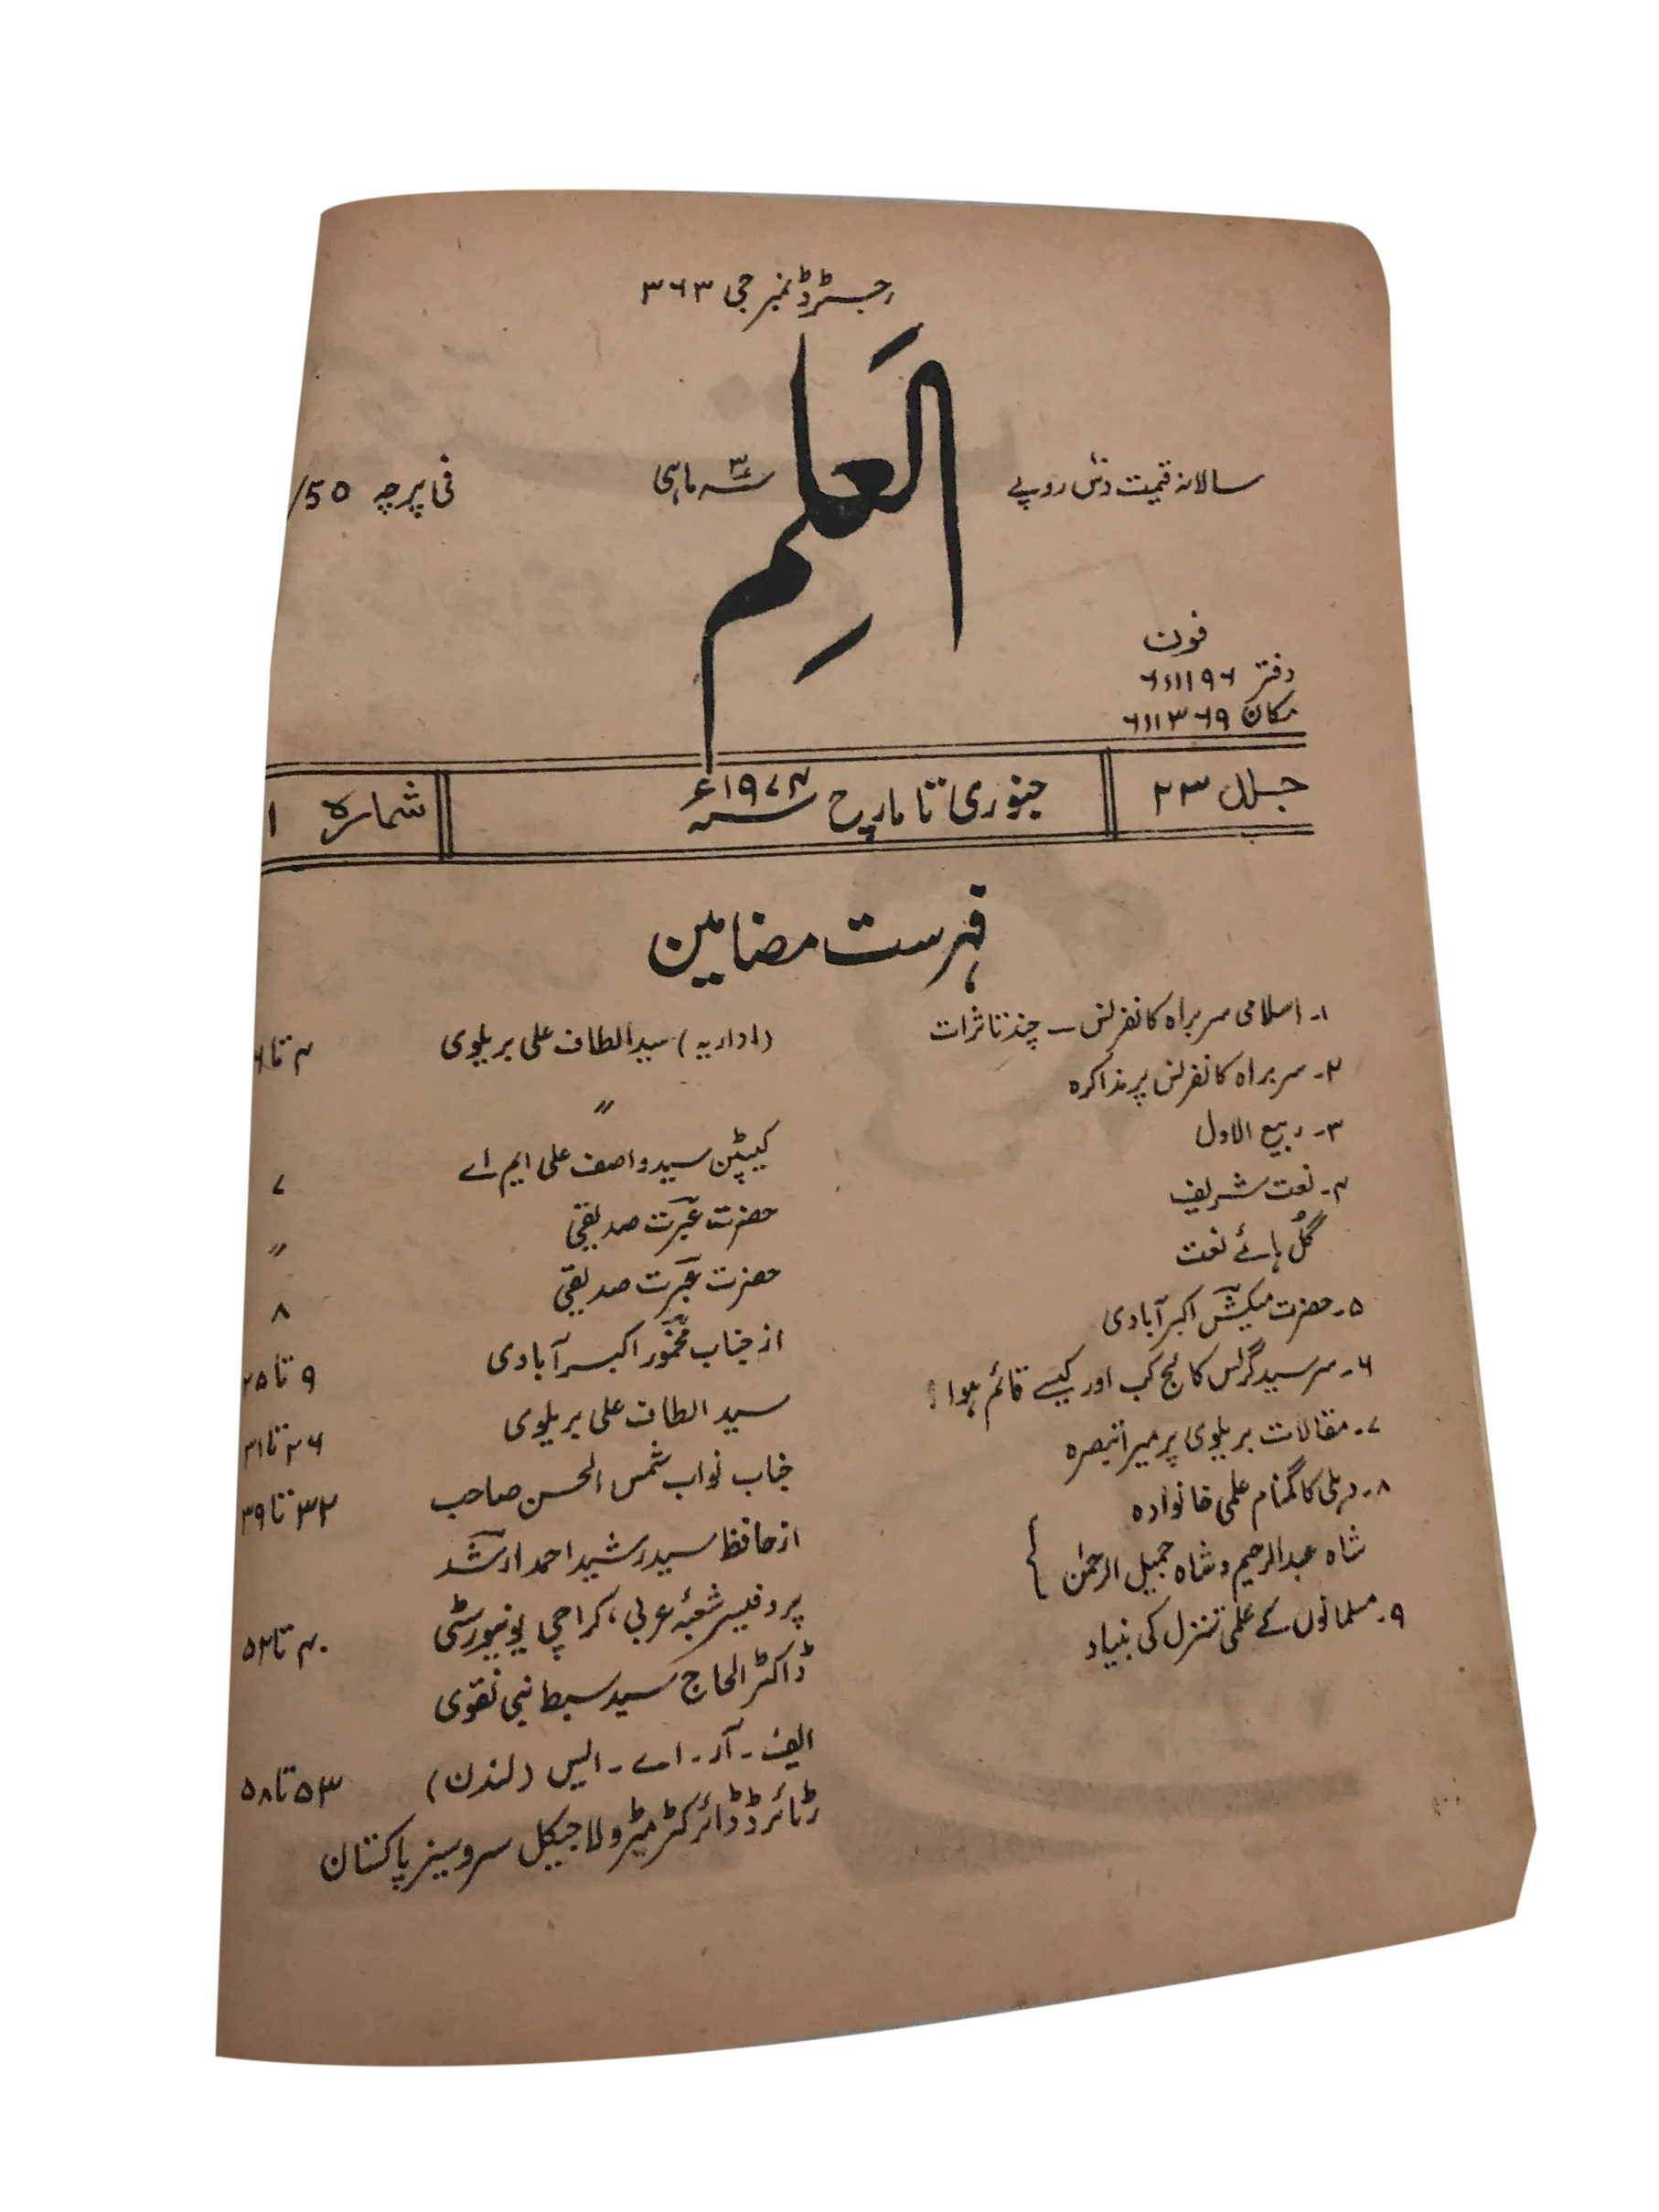 رجسٹرڈ نمبر جی ۳۶۳
العلم
سالانہ قیمت دس روپے
سہ ۳ ماہی
فی پرچہ 50/
فون
دفتر ۶۱۱۱۹۶
مکان ۶۱۱۳۶۹
جلد ۲۳
جنوری تا مارچ سنہ ۱۹۷۴ء
شمارہ ۱
فہرست مضامین
۱۔ اسلامی سربراہ کانفرنس – چند تاثرات (اداریہ) سید الطاف علی بریلوی ۴ تا ۶
۲۔ سربراہ کانفرنس پر مذاکرہ 〃
۳۔ ربیع الاول کیپٹن سید واصف علی ایم اے ۷
۴۔ نعت شریف حضرت عبرت صدیقی 〃
گُل ہائے نعت حضرت عبرت صدیقی ۸
۵۔ حضرت میکش اکبرآبادی از جناب مخمور اکبرآبادی ۹ تا ۲۵
۶۔ سرسید گرلس کالج کب اور کیسے قائم ہوا؟ سید الطاف علی بریلوی ۲۶ تا ۳۱
۷۔ مقالات بریلوی پر میرا تبصرہ جناب نواب شمس الحسن صاحب ۳۲ تا ۳۹
۸۔ دہلی کا گمنام علمی خانوادہ از حافظ سید رشید احمد ارشد
شاہ عبدالرحیم و شاہ جمیل الرحمٰن } پروفیسر شعبۂ عربی، کراچی یونیورسٹی ۴۰ تا ۵۲
۹۔ مسلمانوں کے علمی تنزل کی بنیاد ڈاکٹر الحاج سید سبط نبی نقوی
ایف۔ آر۔ اے۔ ایس (لندن) ۵۳ تا ۵۸
رٹائرڈ ڈائرکٹر میٹرولاجیکل سروسیز پاکستان